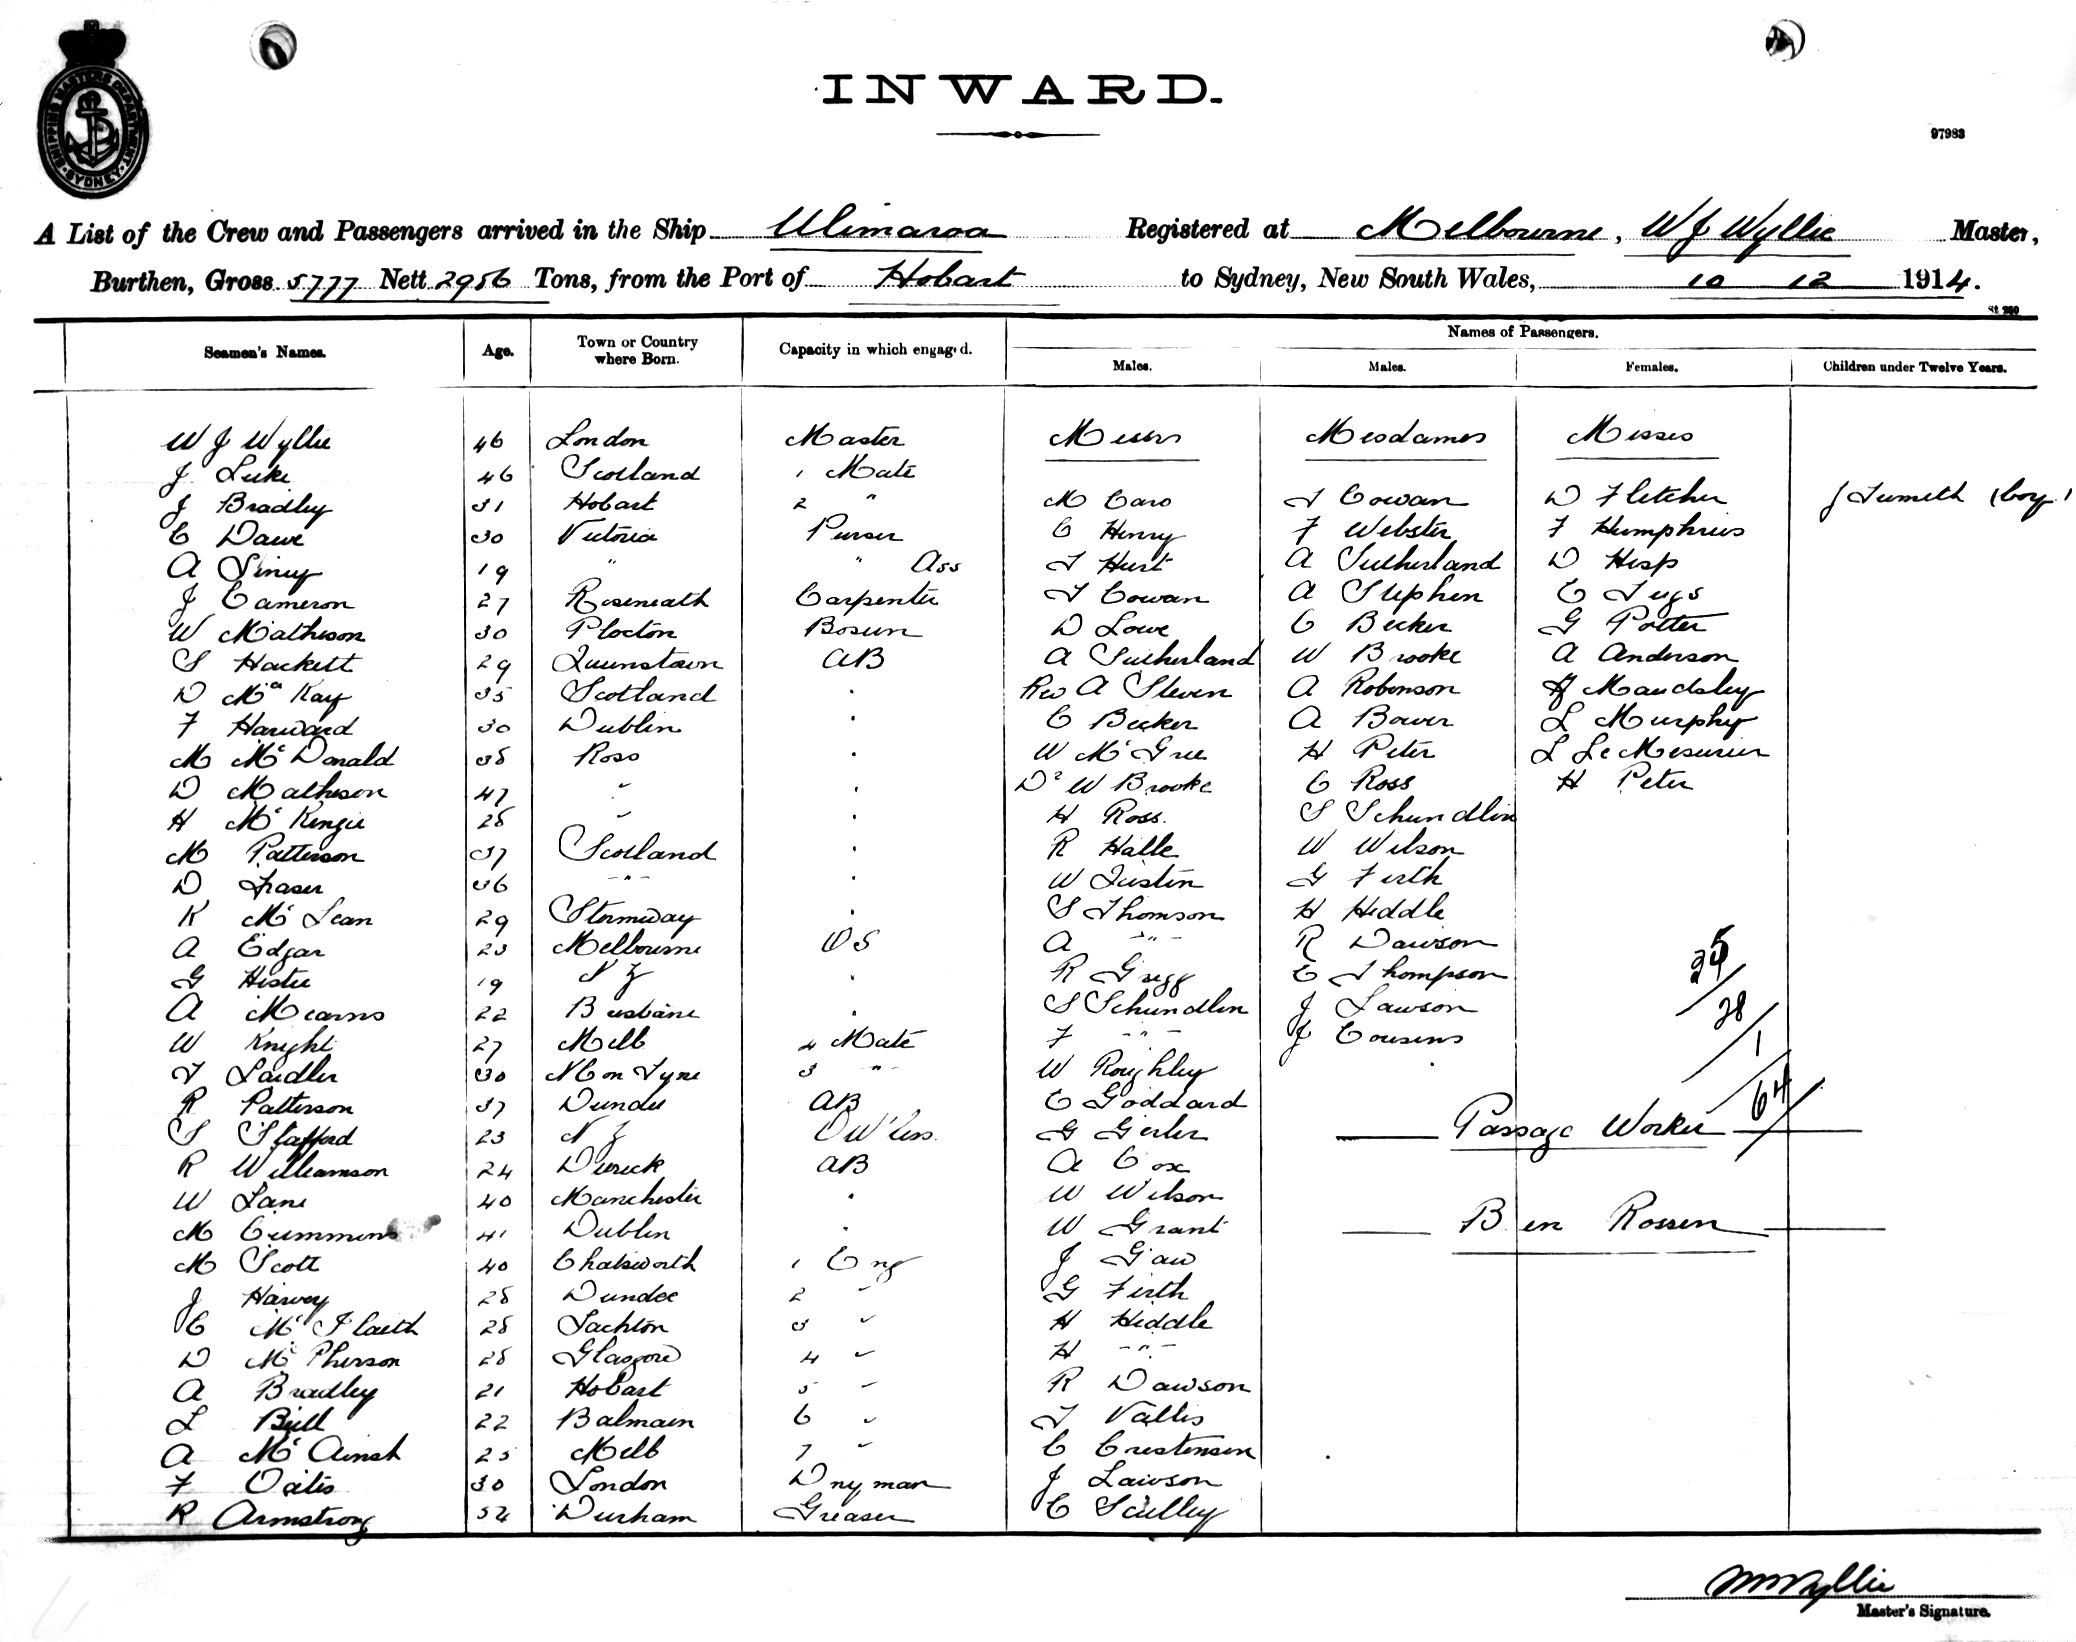 SHIPPING MASTERS DEPARTMENT
SYDNEY
INWARD.
97983
A List of the Crew and Passengers arrived in the Ship Ulimaroa Registered at Melbourne, W J Wyllie Master,
Burthen, Gross 5777 Nett 2956 Tons, from the Port of Hobart to Sydney, New South Wales, 10 12 1914.
Names of Passengers.
Seamen's Names. Age. Town or Country where Born. Capacity in which engaged. Males. Males. Females. Children under Twelve Years.
W J Wyllie 46 London Master Messrs Mesdames Misses
J Luke 46 Scotland 1 Mate
J Bradley 31 Hobart 2 " M Caro T Cowan D Fletcher J (boy)
E Dawe 30 Victoria Purser C Henry F Webster F Humphries
A 19 " " Ass T Hurt A Sutherland D Hesp
J Cameron 27 Roseneath Carpenter T Cowan A Stephen E
W Matheson 30 Plocton Bosun D Lowe C Becker G Potter
S Hackett 29 Queenstown AB A Sutherland W Brooke A Anderson
D McKay 35 Scotland " Rev A Steven A Robinson Maudsley
F Harward 30 Dublin " C Becker A Bower L Murphy
M McDonald 38 Ross " W McGree H Peter L LeMesurier
D Matheson 47 " " Dr W Brooke C Ross H Peter
H McKenzie 28 " " H Ross. S Schundlin
M Patterson 37 Scotland " R Halle W Wilson
D Fraser 36 -"- " W Justin G Firth
K McLean 29 Stornoway " S Thomson H Hiddle
A Edgar 23 Melbourne OS A -"- R Dawson
G Histie 19 NZ " R Gregg E Thompson 35
A Mearns 22 Brisbane " S Schundlin J Lawson 28
W Knight 27 Melb 4 Mate F -"- J Cousens 1
T Laidler 30 N C on Tyne 3 " W Roughley
R Patterson 37 Dundee AB C Goddard 64
S Stafford 23 NZ O W'less. G Passage Worker
R Williamson 24 AB A Cox
W Lane 40 Manchester " W Wilson
M Cummins 41 Dublin " W Grant Ben Rossen
M Scott 40 Chatsworth 1 Eng J Gaw
J Harvey 28 Dundee 2 " G Firth
C 28 3 " H Hiddle
D McPherson 28 Glasgow 4 " H -"-
A Bradley 21 Hobart 5 " R Dawson
L Bull 22 Balmain 6 " T Vallis
A McAinsh 23 Melb 7 " C Crestensen
F Oates 30 London Dnyman J Lawson
R Armstrong 52 Durham Greaser C Sculley
W J Wyllie
Master's Signature.